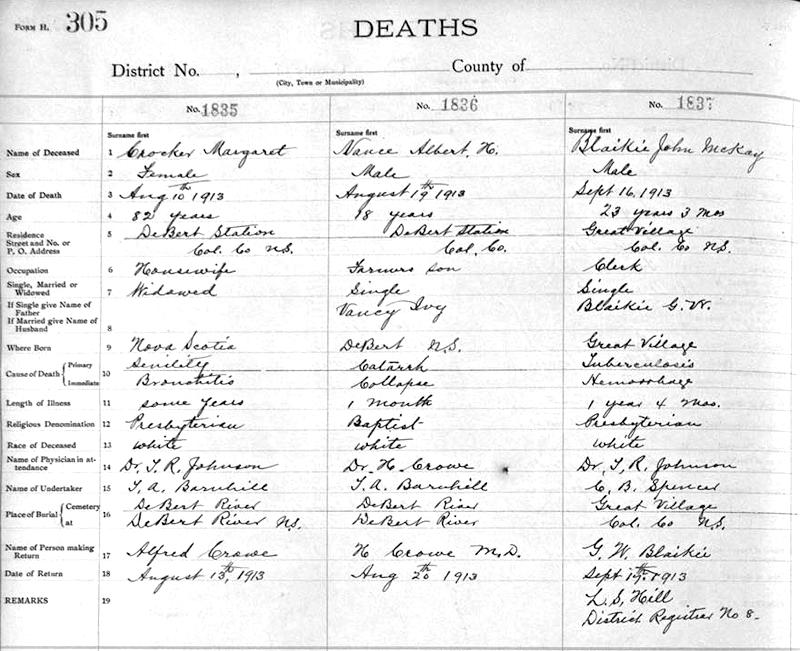 FORM H. 305
DEATHS
District No. , County of
(City, Town or Municipality)
No. 1835 No. 1836 No. 1837
Surname first Surname first Surname first
Name of Deceased 1 Crocker Margaret Vance Albert, H. Blaikie John McKay
Sex 2 Female Male Male
Date of Death 3 Aug 10th 1913 August 19th 1913 Sept 16, 1913
Age 4 82 years 18 years 23 years 3 Mos
Residence 5 DeBert Station DeBert Station Great Village
Street and No. or
P. O. Address Col. Co N.S. Col. Co. Col. Co N.S.
Occupation 6 Housewife Farmers son Clerk
Single, Married or
Widowed 7 Widowed Single Single
If Single give Name of
Father Ivy Blaikie G. W.
If Married give Name of
Husband 8
Where Born 9 Nova Scotia DeBert N.S. Great Village
Cause of Death 10 Primary Senility Catarrh Tuberculosis
Immediate Bronchitis Collapse Hemorrhage
Length of Illness 11 some years 1 month 1 year 4 Mos.
Religious Denomination 12 Presbyterian Baptist Presbyterian
Race of Deceased 13 white white white
Name of Physician in at-
tendance 14 Dr. T. R. Johnson Dr. H. Crowe Dr. T. R. Johnson
Name of Undertaker 15 T. A. Barnhill T. A. Barnhill C. B. Spencer
Place of Burial 16 Cemetery DeBert River DeBert River Great Village
at DeBert River N.S. DeBert River Col. Co N.S.
Name of Person making
Return 17 Alfred Crowe H Crowe M.D. G. W. Blaikie
Date of Return 18 August 13th, 1913 Aug 20th 1913 Sept 19th 1913
REMARKS 19 L. S. Hill
District Registrar No 8-